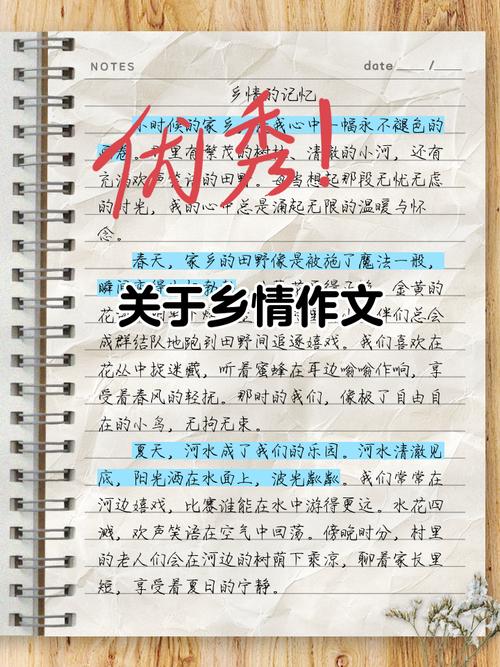 NOTES
date ___ / ___
乡情的记忆
优秀!
小时候的家乡,是我心中一幅永不褪色的
画卷。那里有繁茂的树林、清澈的小河,还有
充满欢声笑语的田野。每当想起那段无忧无虑
的时光,我的心中总是涌起无限的温暖与怀
念。
春天,家乡的田野像是被施了魔法一般,
瞬间
金黄的
关于乡情作文
花
伴们总会
成群结队地跑到田野间追逐嬉戏。我们喜欢在
花丛中捉迷藏,听着蜜蜂在耳边嗡嗡作响,享
受着春风的轻抚。那时的我们,像极了自由自
在的小鸟,无拘无束。
夏天,河水成了我们的乐园。河水清澈见
底,阳光洒在水面上,波光粼粼。我们常常在
河边嬉戏,比赛谁能在水中游得更远。水花四
溅,欢声笑语在空气中回荡。傍晚时分,村里
的老人们会在河边的树荫下乘凉,聊着家长里
短,享受着夏日的宁静。